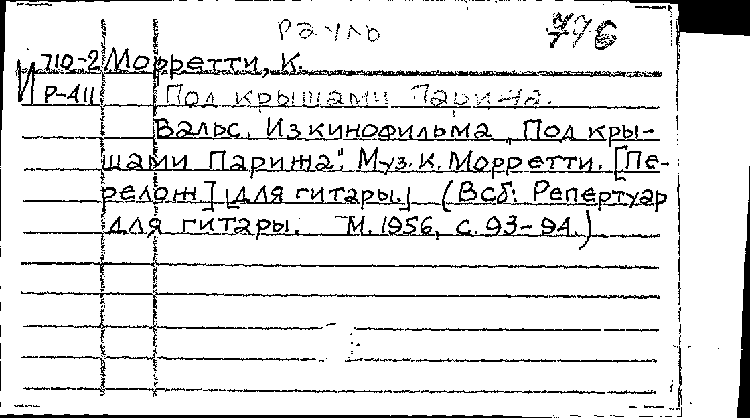 Рауль 796
710-2 Морретти, К.
И Р-411 Под крышами Парижа.
Вальс. Из кинофильма „Под кры-
шами Парижа". Муз. К. Морретти. [Пе-
релож] для гитары. (В сб: Репертуар
для гитары. М. 1956, с. 93-94.)